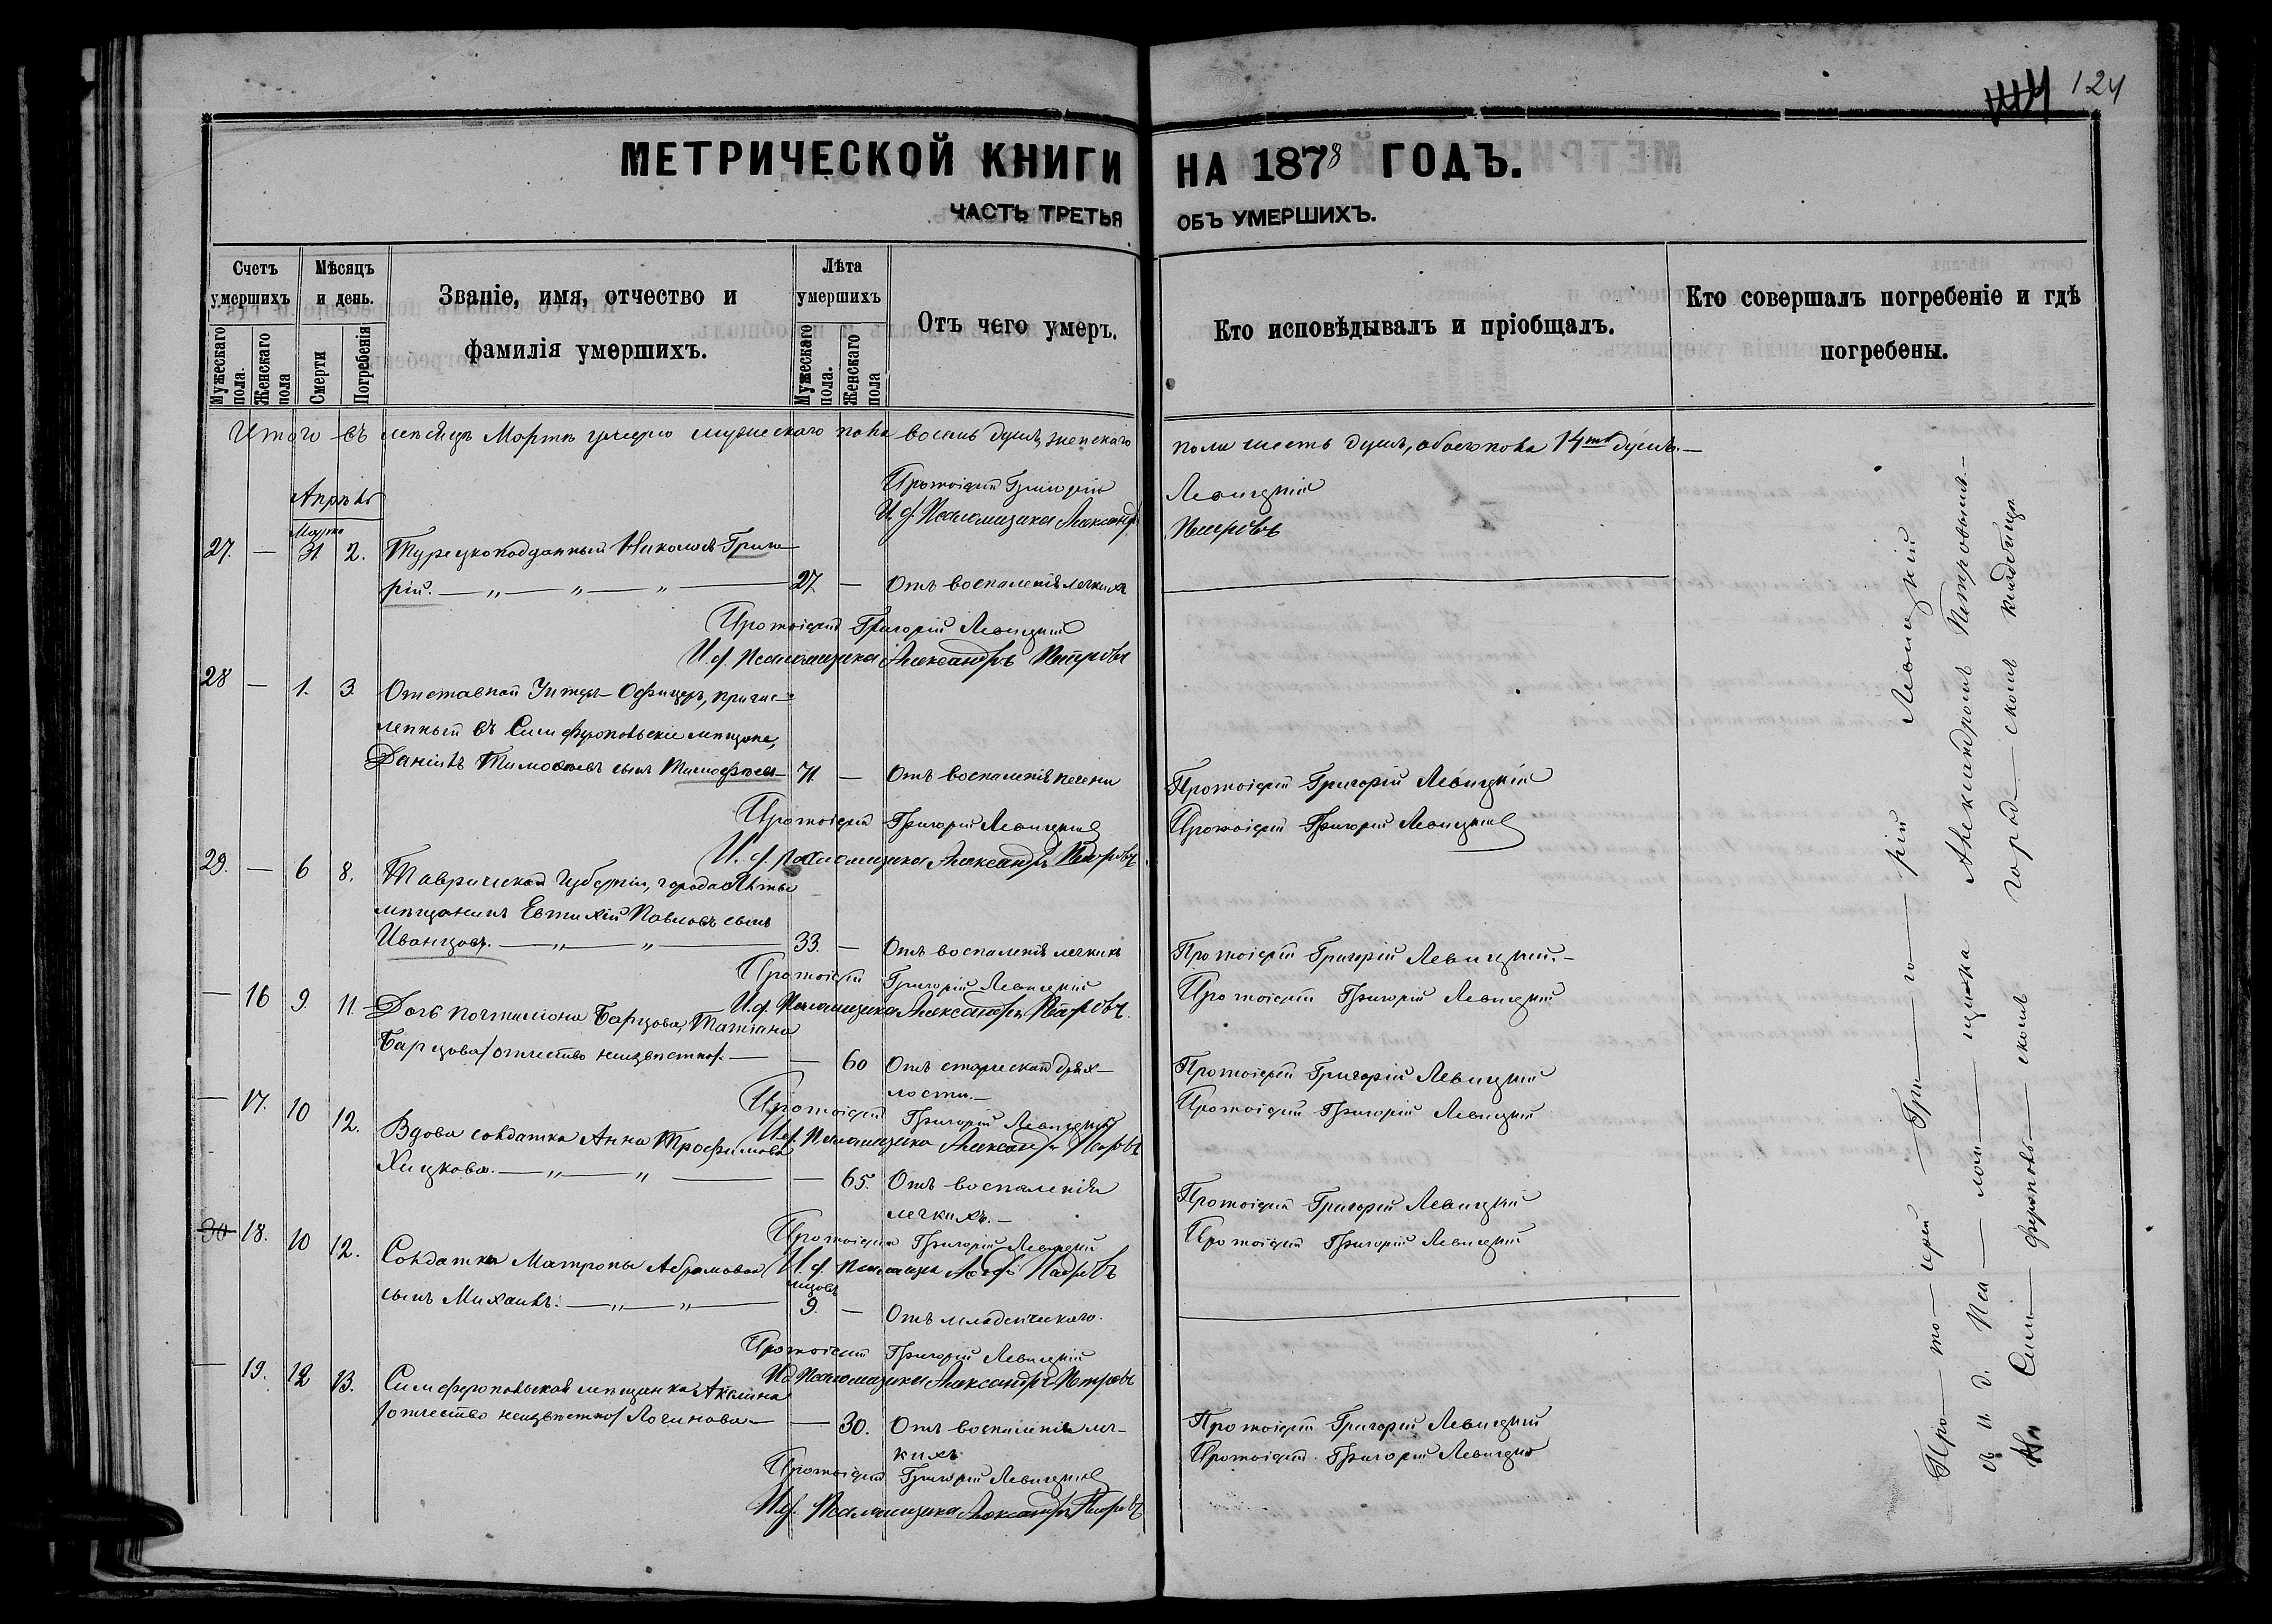 124
МЕТРИЧЕСКОЙ КНИГИ НА 1878 ГОДЪ.
ЧАСТЬ ТРЕТЬЯ ОБЪ УМЕРШИХЪ.
Счетъ умершихъ
Мужескаго пола.
Женскаго пола
Мѣсяцъ и день.
Смерти
Погребенія
Званіе, имя, отчество и
фамилія умершихъ.
Лѣта умершихъ
Мужескаго пола.
Женскаго пола
Отъ чего умеръ.
Кто исповѣдывалъ и пріобщалъ.
Кто совершалъ погребеніе и гдѣ
погребены.
Итого въ мѣсяцѣ Мартѣ умерло мужескаго пола восемь душъ, женскаго
пола шесть душъ, обоего пола 14ть душъ.—
Протоіерей Григорій Левицкій
И. д. Псаломщика Александръ Петровъ
Апрѣль
Марта
27. — 31 2. Турецкоподданный Николай Григо-
рій. — „ — „ — „ — 27. — Отъ воспаленія легкихъ
Протоіерей Григорій Левицкій
И. д. Псаломщика Александръ Петровъ
28 — 1. 3. Отставной Унтеръ-Офицеръ, причис-
ленный въ Симферопольскіе мѣщане,
Даніилъ Тимоѳеевъ сынъ 71 — Отъ воспаленія печени
Протоіерей Григорій Левицкій
Протоіерей Григорій Левицкій
Протоіерей Григорій Левицкій
И. д. Псаломщика Александръ Петровъ
29. — 6 8. Таврической Губерніи, города Ялты
мѣщанинъ Евтихій Павловъ сынъ
Иванцовъ. — „ — „ — 33. — Отъ воспаленія легкихъ
Протоіерей Григорій Левицкій.—
Протоіерей Григорій Левицкій
Протоіерей Григорій Левицкій
И. д. Псаломщика Александръ Петровъ.
— 16 9 11. Дочь почталіона Барцова, Татіана
Барцова /отчество неизвѣстно/. — — 60 Отъ старческой дрях-
лости.—
Протоіерей Григорій Левицкій
Протоіерей Григорій Левицкій
Протоіерей Григорій Левицкій
И. д. Псаломщика Александръ Петровъ
— 17. 10 12. Вдова солдатка Анна Трофимова
Хицкова. — „ — „ — — 65. Отъ воспаленія
легкихъ.—
Протоіерей Григорій Левицкій
Протоіерей Григорій Левицкій
Протоіерей Григорій Левицкій
И. д. Псаломщика Петровъ
30 18. 10 12. Солдатки Матроны Абрамовой
сынъ Михаилъ. — „ — „ — 9. — Отъ младенческаго.
Протоіерей Григорій Левицкій
И. д. Псаломщика Александръ Петровъ
— 19. 12 13. Симферопольская мѣщанка Акилина
/отчество неизвѣстно/ Логинова — — 30. Отъ воспаленія лег-
кихъ
Протоіерей Григорій Левицкій
Протоіерей Григорій Левицкій
Протоіерей Григорій Левицкій
И. д. Псаломщика Александръ Петровъ
Про — то — іерей — Гри — го — рій Левицкій
съ и. д. Пса — лом — щика Александромъ Петровымъ.—
На Сим — ферополь — скомъ город — скомъ кладбищѣ